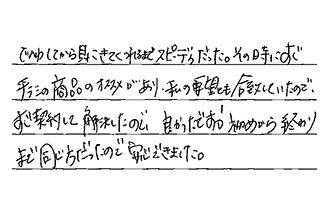 でんわしてから見にきてくれるまでスピーディだったし。その日時にすぐ
チラシの商品のオススメがあり、私の要望とも合致していたので、
すぐ契約して解決したので、良かったです。初めから終わり
まで同じ方だったので安心できました。